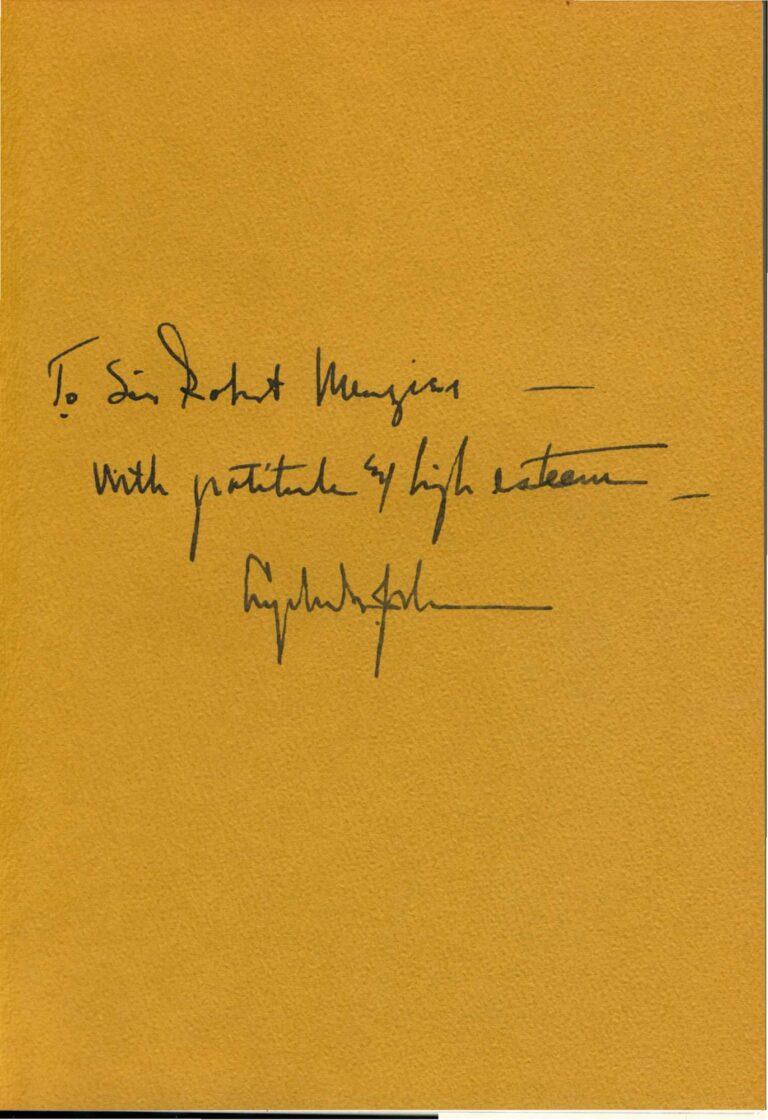 To Sir Robert Menzies —
with gratitude & high esteem —
Lyndon B. Johnson